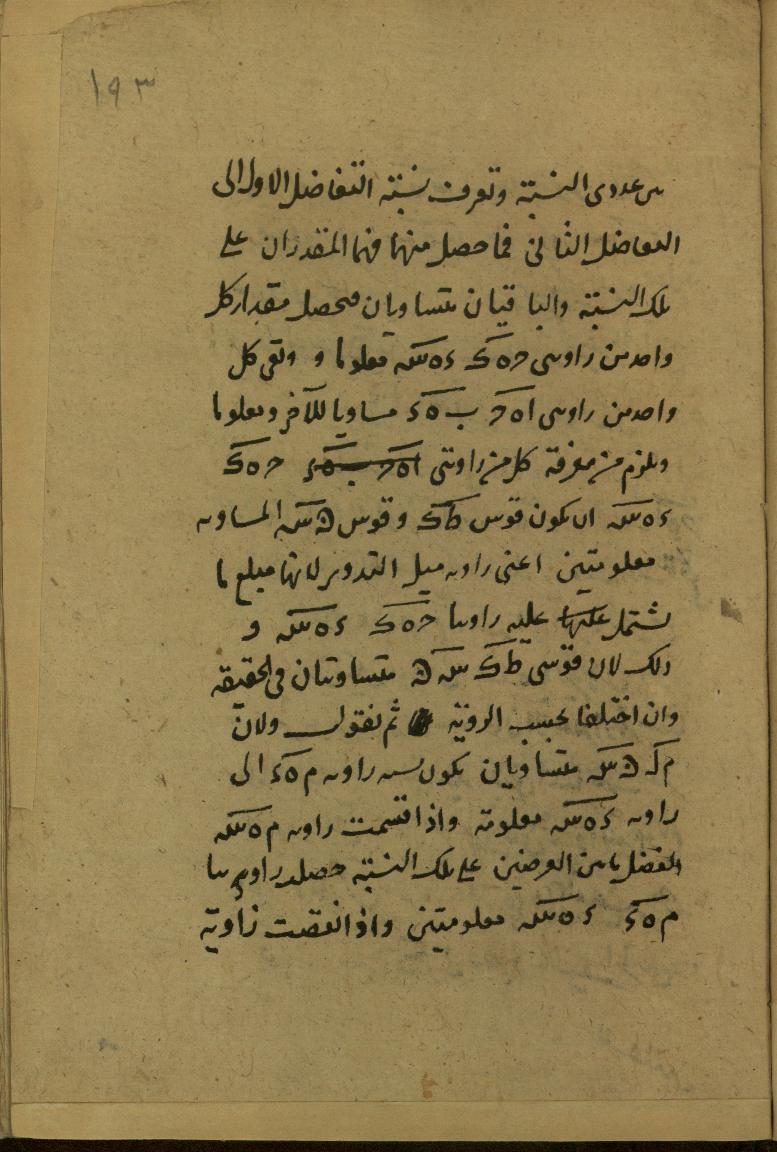 ١٩٣
من عددى النسبة وتعرف نسبة التفاضل الاول الى
التفاضل الثانى فما حصل منهما فهما المقدران على
تلك النسبة والباقيان متساويان فحصل مقدار كل
واحد من زاويتى حه ک ءه سه معلوما و وبقى كل
واحد من زاويتى اه ح ب ه ء مساويا للآخر ومعلوما
ويلزم من معرفة كل من زاويتى اه ح ب ه ء حه ک
ءه سه ان يكون قوس ط ک وقوس ں سه المساويه
معلومتين اعنى زاويه ميل التدوير لانها مبلغ ما
يشتمل عليها عليه زاويتا حه ک ءه سه و
ذلك لان قوسى ط ک سه ں متساويتان فى الحقيقة
وان اختلفا بحسب الرؤية ثم نقول ولان
م ک ں سه متساويان يكون نسبه زاويه م ه ء الى
زاويه ءه سه معلومة واذا قسمت زاويه م ه سه
الفضل ما بين العرضين على تلك النسبة حصلت زاويتا
م ه ء ءه سه معلومتين واذا انقصت زاوية